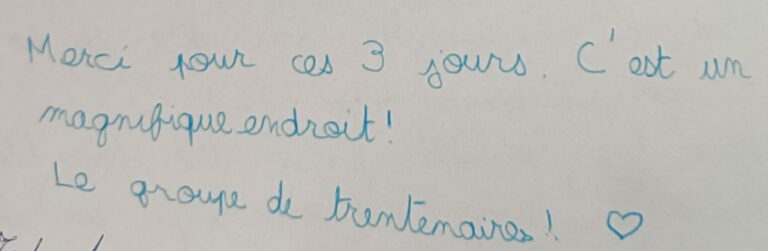 Merci pour ces 3 jours. C'est un
magnifique endroit!
Le groupe de trentenaires! ♡